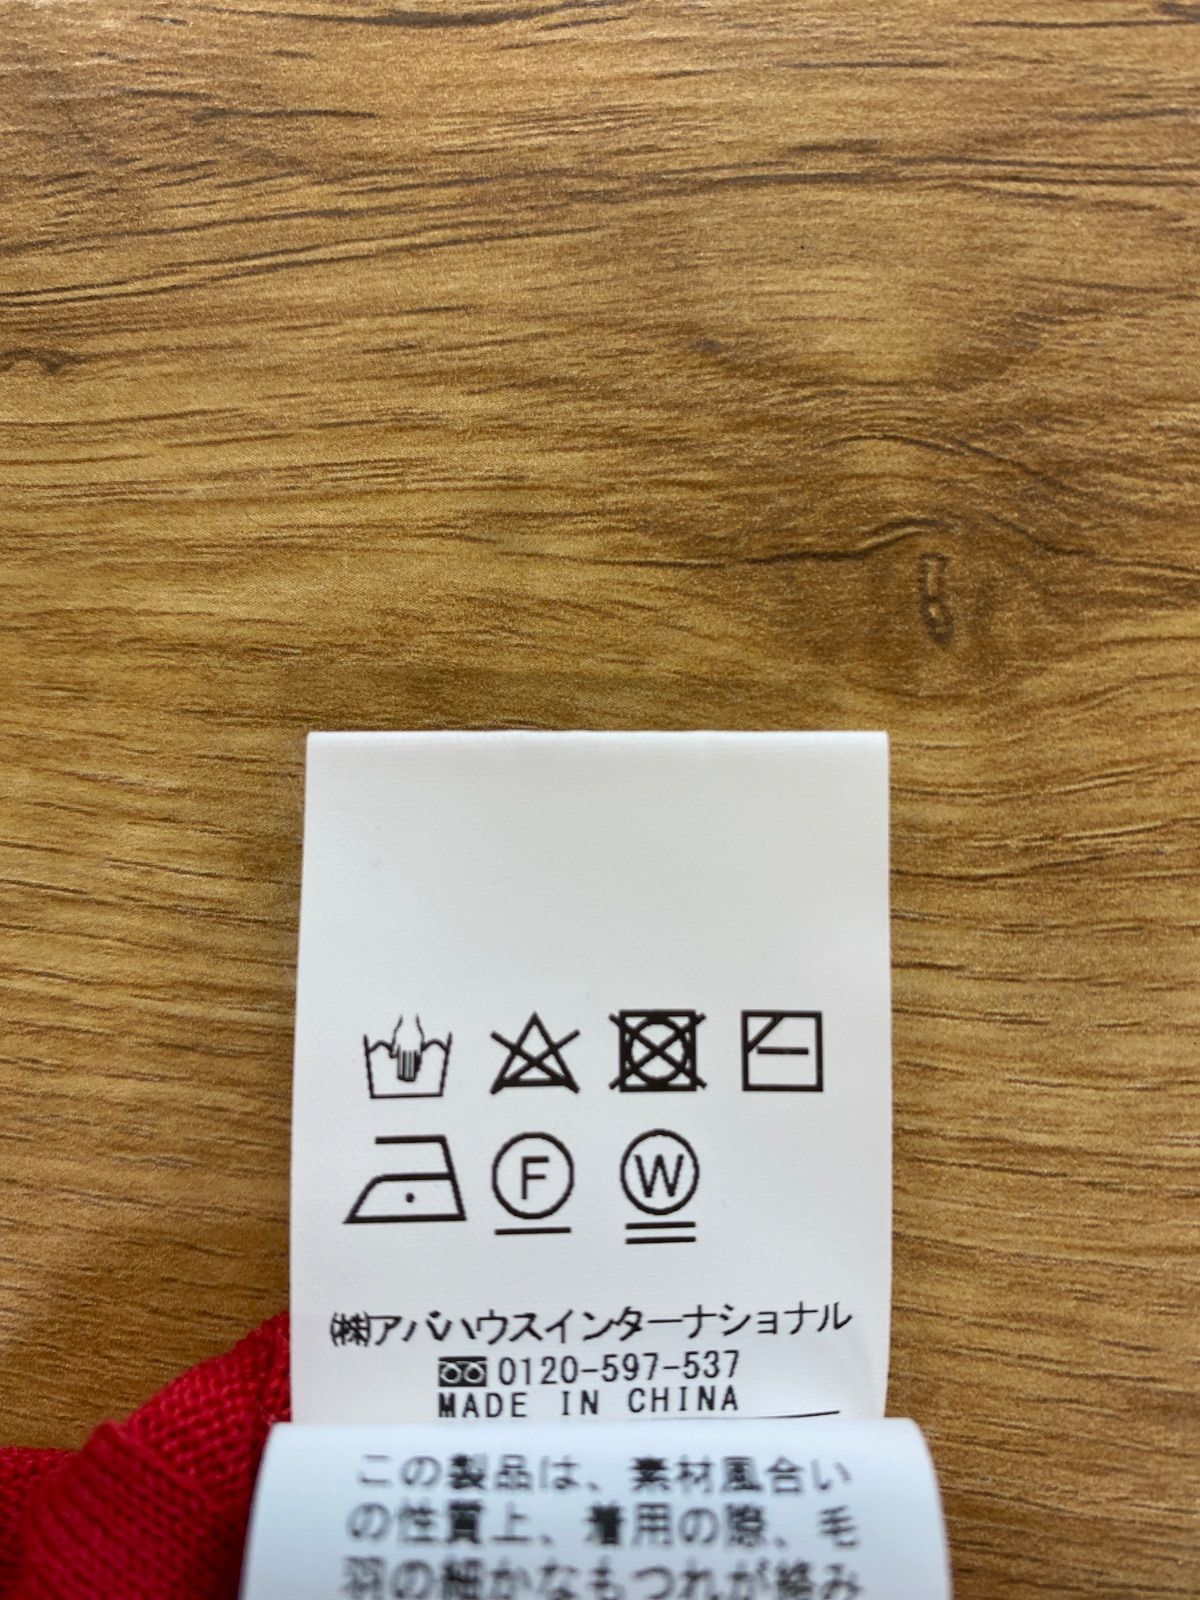 F W
㈱アバハウスインターナショナル
0120-597-537
MADE IN CHINA
この製品は、素材風合い
の性質上、着用の際、毛
羽の細かなもつれが絡み